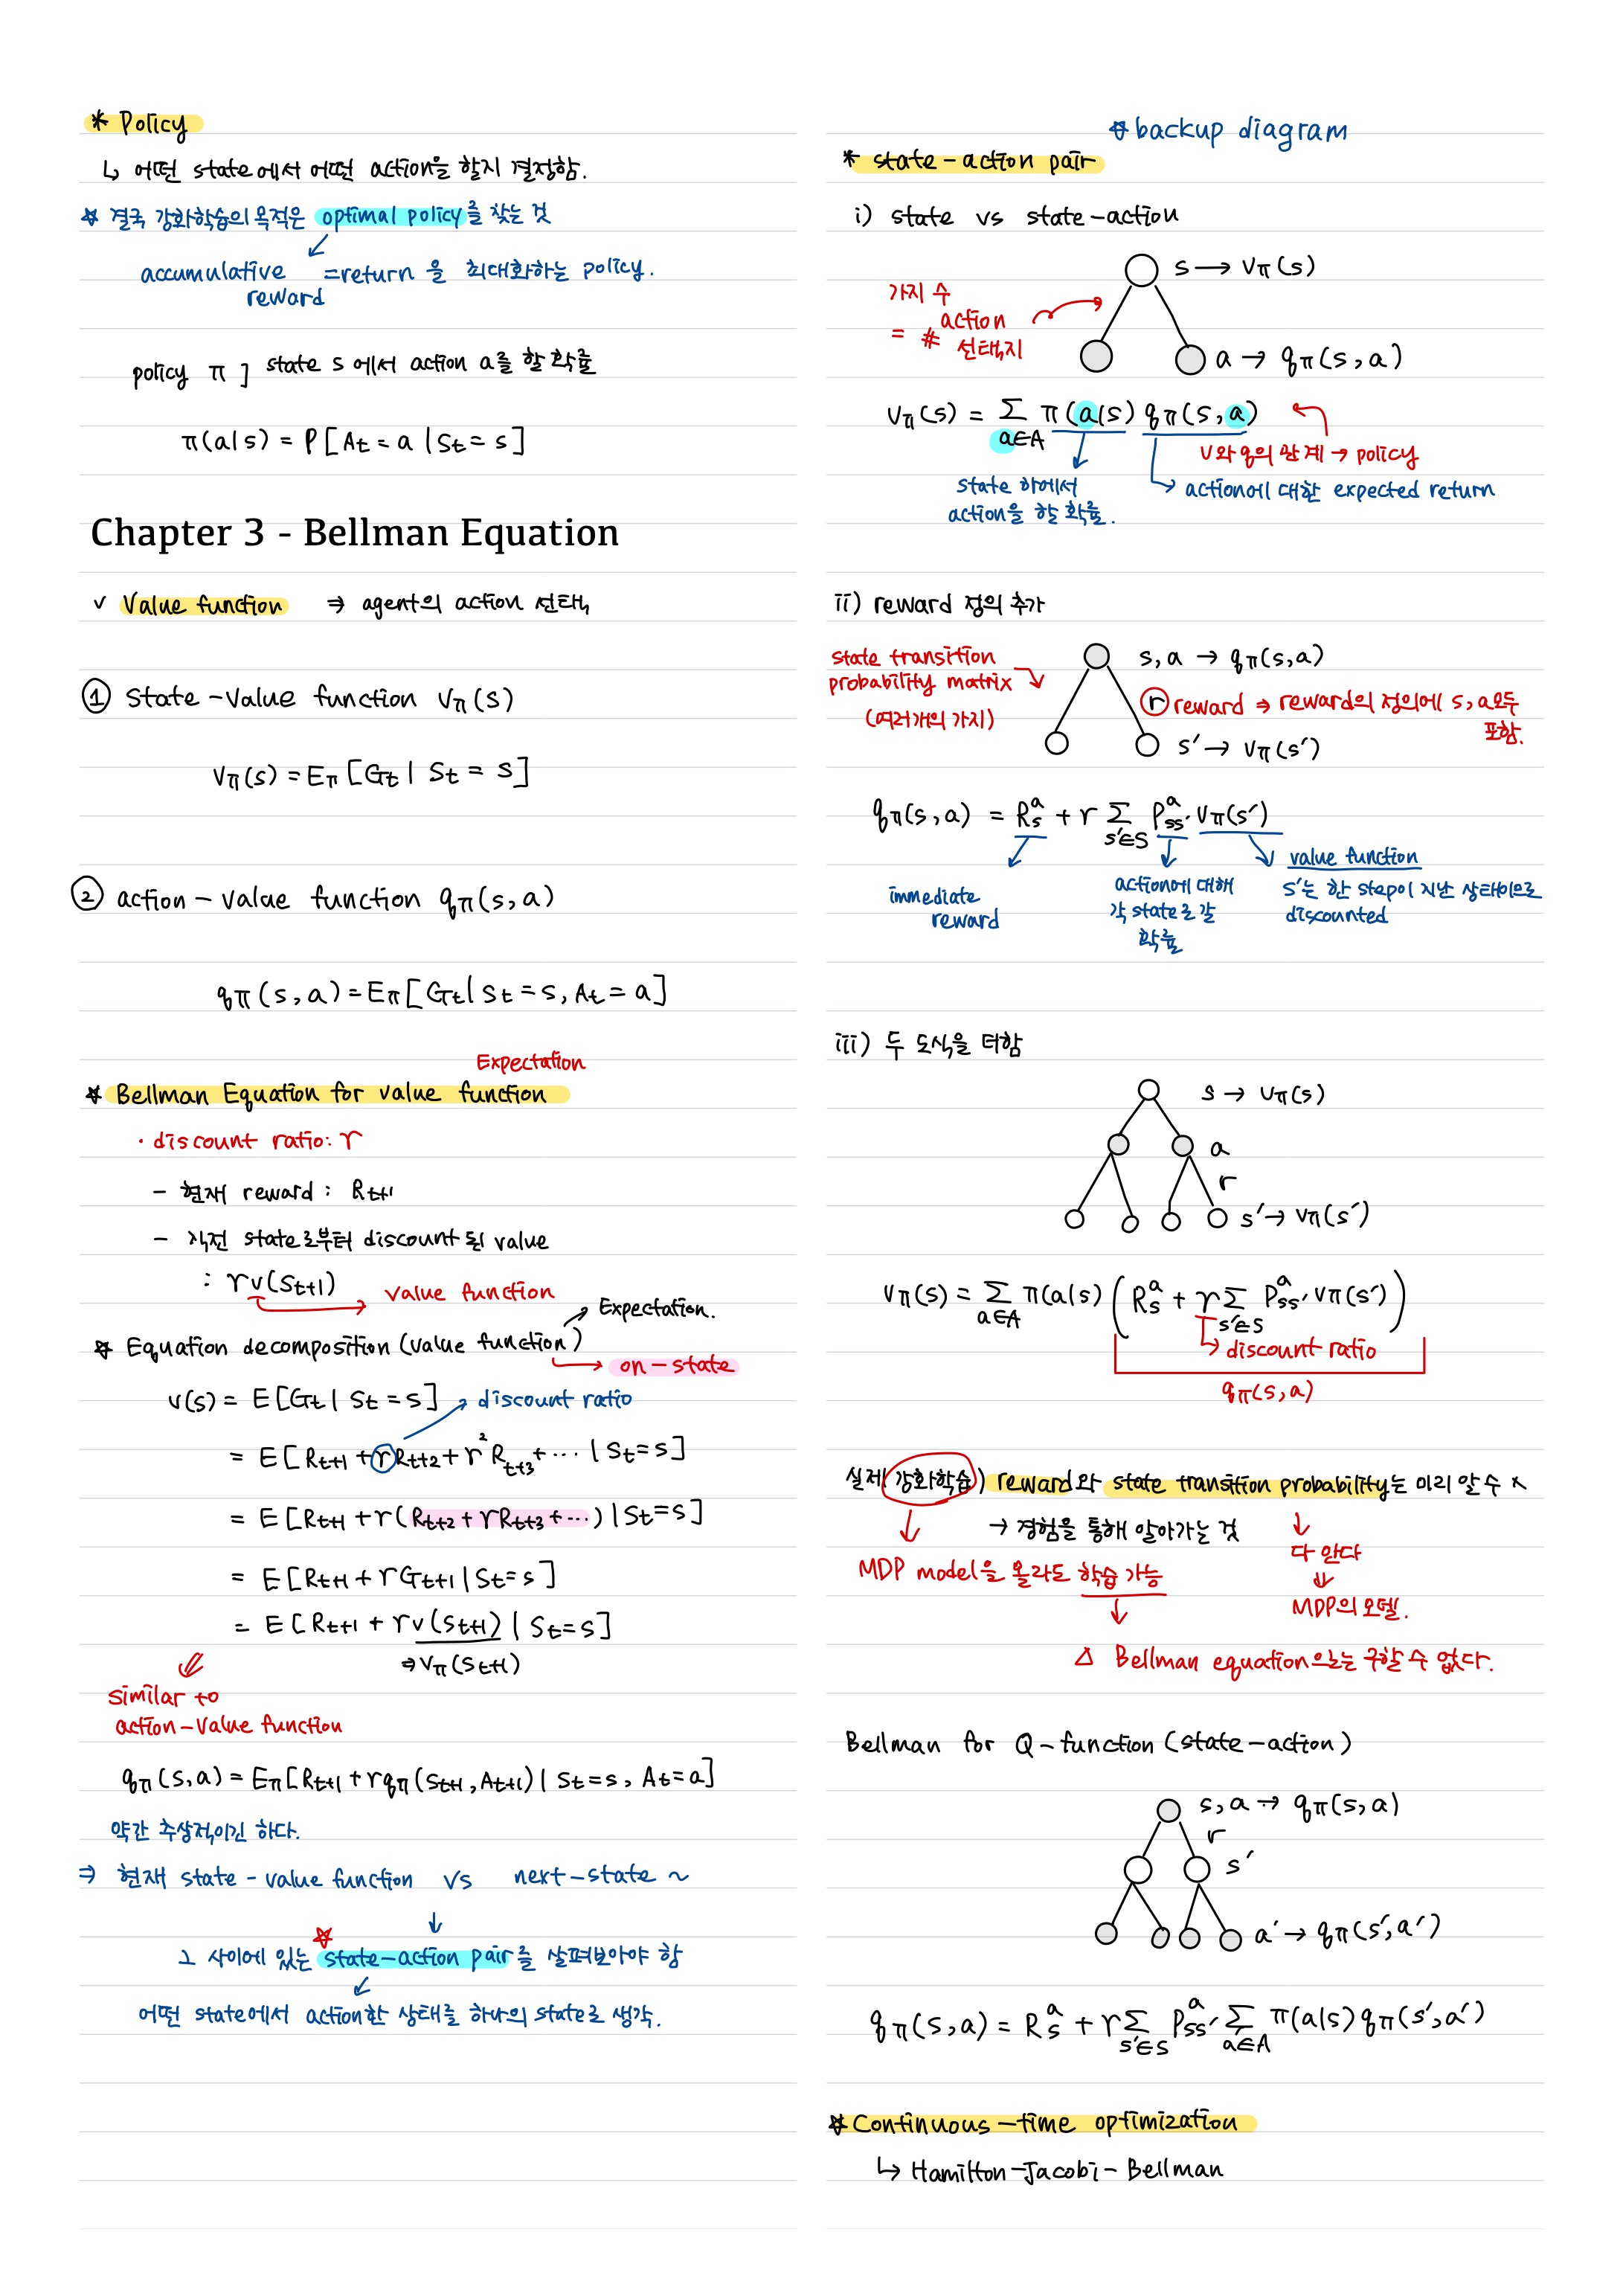 * Policy
↳ 어떤 state에서 어떤 action을 할지 결정함.
☆ 결국 강화학습의 목적은 optimal policy를 찾는 것
accumulative reward = return 을 최대화하는 policy.
policy π ] state s 에서 action a를 할 확률
π(a|s) = P[At = a | St = s]
Chapter 3 - Bellman Equation
∨ Value function ⇒ agent의 action 선택
① State-value function Vπ(s)
Vπ(s) = Eπ[Gt | St = s]
② action-value function qπ(s,a)
qπ(s,a) = Eπ[Gt | St = s, At = a]
Expectation
☆ Bellman Equation for value function
· discount ratio: r
- 현재 reward : Rt+1
- 직전 state로부터 discount 된 value
: rv(St+1)
value function
Expectation.
☆ Equation decomposition (value function)
on-state
v(s) = E[Gt | St = s]
discount ratio
= E[Rt+1 + rRt+2 + r²Rt+3 + ··· | St = s]
= E[Rt+1 + r(Rt+2 + rRt+3 + ···) | St = s]
= E[Rt+1 + rGt+1 | St = s]
= E[Rt+1 + rv(St+1) | St = s]
⇒ Vπ(St+1)
similar to
action-value function
qπ(s,a) = Eπ[Rt+1 + rqπ(St+1, At+1) | St = s, At = a]
약간 추상적이긴 하다.
⇒ 현재 state-value function vs next-state ~
↓
☆
그 사이에 있는 state-action pair를 살펴보아야 함
어떤 state에서 action한 상태를 하나의 state로 생각.
☆ backup diagram
* state-action pair
i) state vs state-action
s → Vπ(s)
가지 수
= # action 선택지
a → qπ(s,a)
Vπ(s) = Σa∈A π(a|s) qπ(s,a)
v와 q의 관계 → policy
state 하에서
action을 할 확률.
action에 대한 expected return
ii) reward 정의 추가
state transition
probability matrix
(여러개의 가지)
s,a → qπ(s,a)
r reward ⇒ reward의 정의에 s,a모두
포함.
s′ → Vπ(s′)
qπ(s,a) = Rsᵃ + rΣs′∈S Pss′ᵃ Vπ(s′)
immediate
reward
action에 대해
각 state로 갈
확률
value function
s′는 한 step이 지난 상태이므로
discounted
iii) 두 도식을 더함
s → Vπ(s)
a
r
s′ → Vπ(s′)
Vπ(s) = Σa∈A π(a|s) (Rsᵃ + rΣs′∈S Pss′ᵃ Vπ(s′))
discount ratio
qπ(s,a)
실제 강화학습) reward와 state transition probability는 미리 알 수 ×
→ 경험을 통해 알아가는 것
MDP model을 몰라도 학습 가능
↓
다 안다
⇓
MDP의 모델.
△ Bellman equation으로는 구할 수 없다.
Bellman for Q-function (state-action)
s,a → qπ(s,a)
r
s′
a′ → qπ(s′,a′)
qπ(s,a) = Rsᵃ + rΣs′∈S Pss′ᵃ Σa∈A π(a|s) qπ(s′,a′)
☆ Continuous-time optimization
↳ Hamilton-Jacobi-Bellman